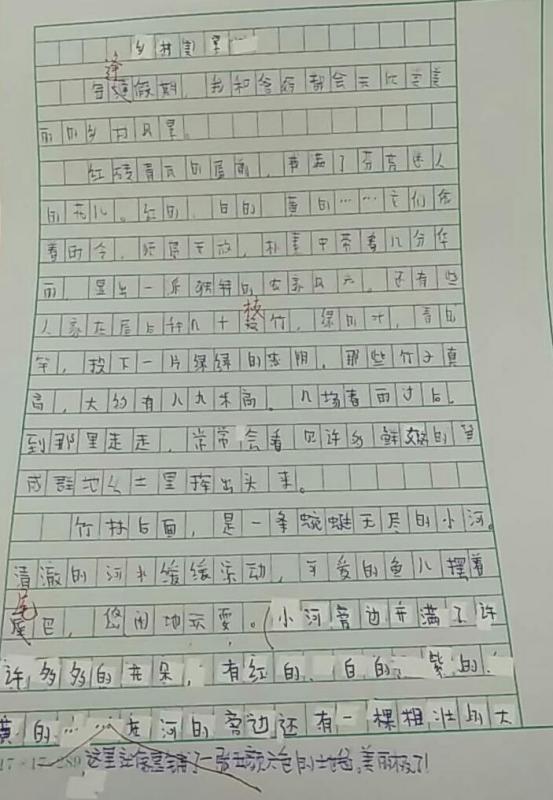 乡村美景
每逢假期,我和爷爷都会去
丽的乡村风景。
红砖青瓦的屋前,种满了芬芳迷人
的花儿。红的、白的、黄的……它们
着时令,依次开放,朴素中带着几分华
丽,显出一派独特的农家风光。还有些
人家在屋后种几十枝竹,绿的叶,青的
竿,投下一片绿绿的浓阴。那些竹子真
高,大约有八九米高。几场春雨过后,
到那里走走,常常会看见许多鲜嫩的笋
成群地从土里探出头来。
竹林后面,是一条蜿蜒无尽的小河。
清澈的河水缓缓流动,可爱的鱼儿摆着
尾巴,悠闲地玩耍。小河旁边开满了许
许多多的花朵,有红的、白的、紫的、
黄的……在河的旁边还有一棵粗壮的大
这里就像是铺了一张五颜六色的地毯,美丽极了!